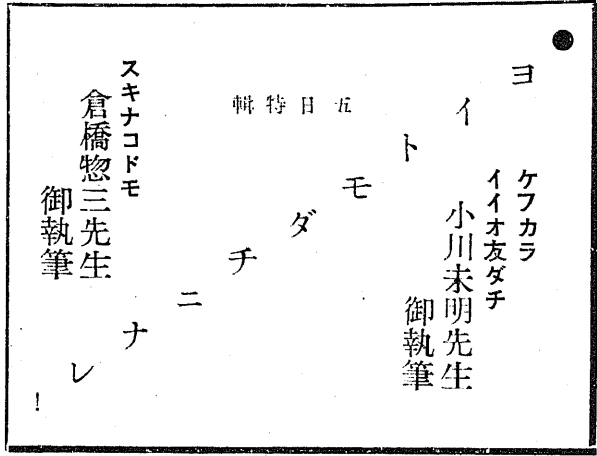 ●
ヨイトモダチニナレ!
五日特輯
ケフカラ
イイオ友ダチ
小川未明先生
御執筆
スキナコドモ
倉橋惣三先生
御執筆